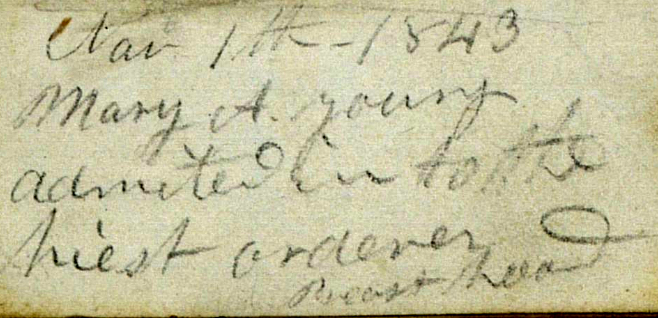 Nov 1th - 1843
Mary A. young
admited in to the
hiest orderer
Preast hood